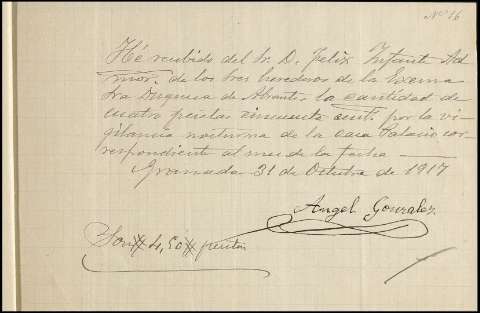 Nº 16
Hé recibido del Sr. D. Felix Infante Ad
mor. de los tres herederos de la Exema
Sra Duquesa de Abrantes la cantidad de
cuatro pesetas cincuenta cent. por la vi-
gilancia nocturna de la casa Palacio cor-
respondiente al mes de la fecha
Granada 31 de Octubre de 1917
Angel Gonzalez
Son 4,50 pesetas